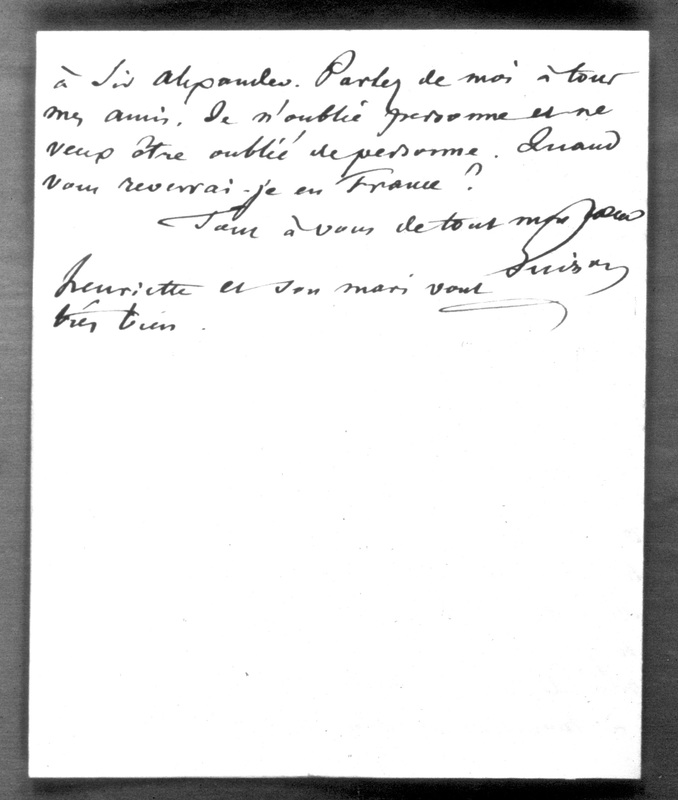 à Sir Alexander. Parlez de moi à tous
mes amis. Je n'oublie personne et ne
veux être oublié de personne. Quand
vous reverrai-je en France ?
Tout à vous de tout mon cœur
Henriette et son mari vont
très bien.